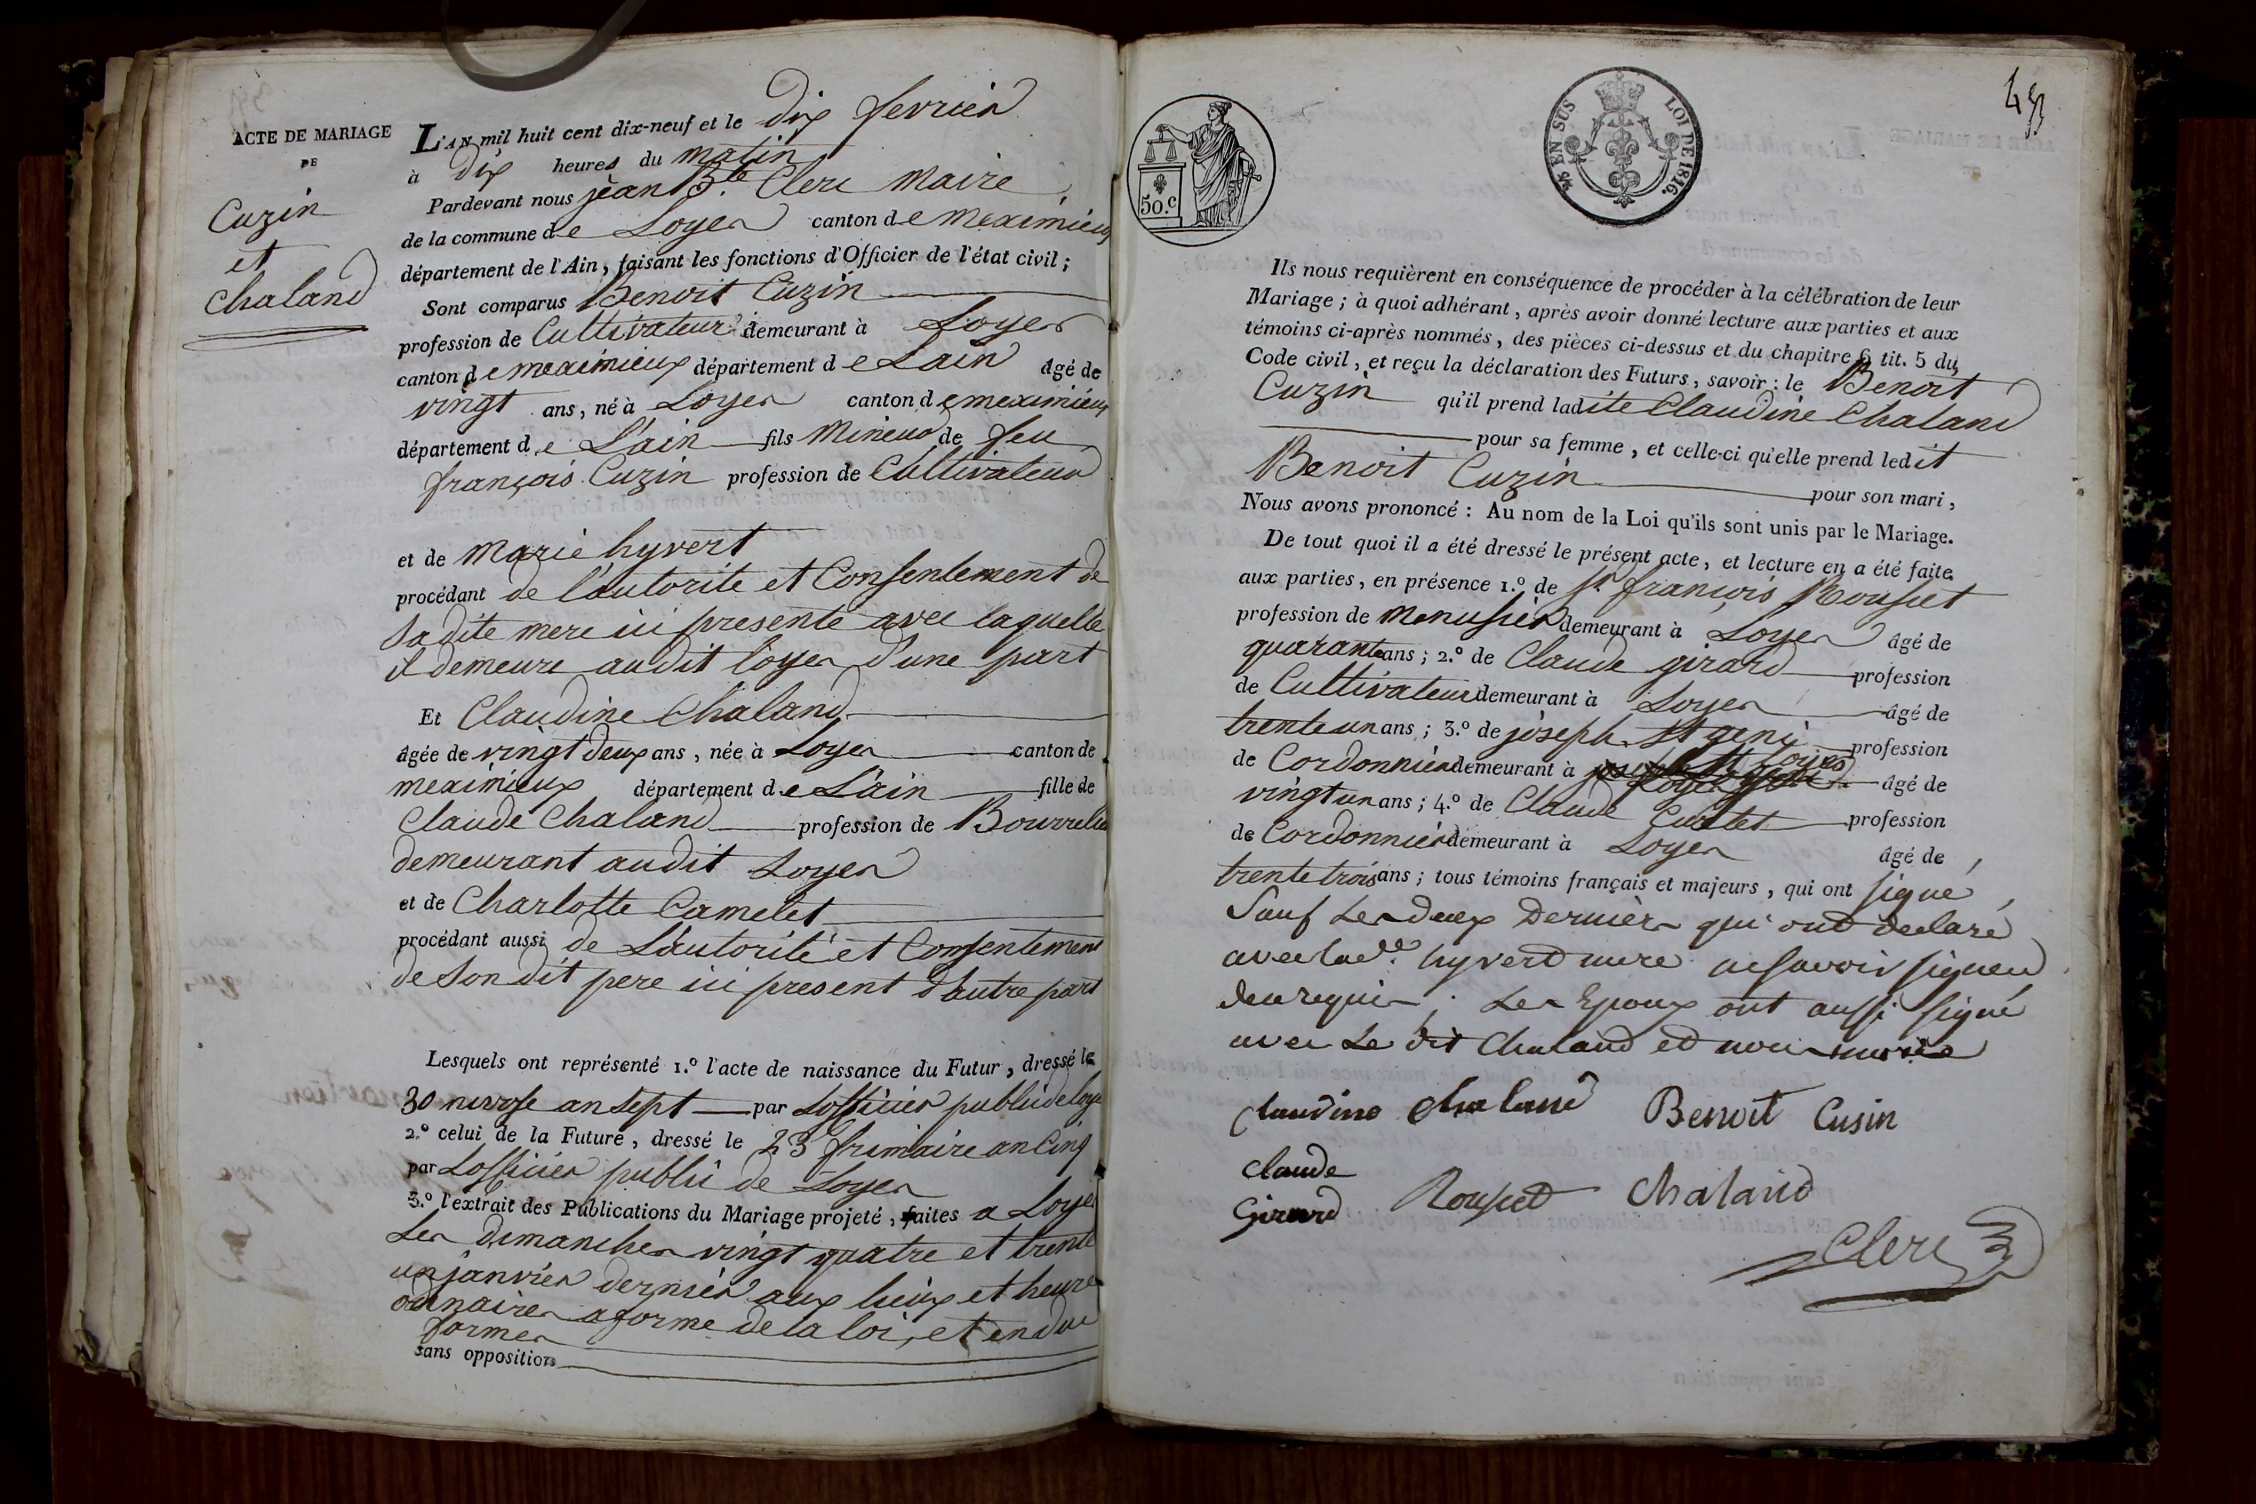 ACTE DE MARIAGE
DE
Cuzin
et
Chaland
L'AN mil huit cent dix-neuf et le dix fevrier
à dix heures du matin
Pardevant nous jean Bte Clerc Maire
de la commune de Loyes canton de meximieux
département de l'Ain, faisant les fonctions d'Officier de l'état civil;
Sont comparus Benoit Cuzin
profession de Cultivateur demeurant à Loyes
canton de meximieux département de Lain âgé de
vingt ans, né à Loyes canton de meximieux
département de L'ain fils Mineur de feu
françois Cuzin profession de Cultivateur
et de Marie hyvert
procédant de l'autorite et Consentement de
Sadite mere ici presente avec laquelle
il demeure audit loyes d'une part
Et Claudine Chaland
âgée de vingt deux ans, née à Loyes canton de
meximieux département de L'ain fille de
Claude Chaland profession de Bourrelier
demeurant audit Loyes
et de Charlotte Camelet
procédant aussi de L'autorité et Consentement
de Son dit pere ici present d'autre part
Lesquels ont représenté 1.º l'acte de naissance du Futur, dressé le
30 nivose an sept par Lofficier public de loyes
2.º celui de la Future, dressé le 23 frimaire an Cinq
par Lofficier public de Loyes
3.º l'extrait des Publications du Mariage projeté, faites a Loyes
Les dimanches vingt quatre et trente
un janvier dernier aux lieux et heure
ordinaires a forme de la loi, et en due
formes
sans opposition
43
50.c
EN SUS
LOI DE 1816.
Ils nous requièrent en conséquence de procéder à la célébration de leur
Mariage; à quoi adhérant, après avoir donné lecture aux parties et aux
témoins ci-après nommés, des pièces ci-dessus et du chapitre 6 tit. 5 du
Code civil, et reçu la déclaration des Futurs, savoir: le Benoit
Cuzin qu'il prend ladite Claudine Chaland
pour sa femme, et celle-ci qu'elle prend ledit
Benoit Cuzin pour son mari,
Nous avons prononcé: Au nom de la Loi qu'ils sont unis par le Mariage.
De tout quoi il a été dressé le présent acte, et lecture en a été faite
aux parties, en présence 1.º de Sr françois Rousset
profession de Menusier demeurant à Loyes âgé de
quarante ans; 2.º de Claude girard profession
de Cultivateur demeurant à Loyes âgé de
trente un ans; 3.º de joseph St geni profession
de Cordonnier demeurant à Loyes âgé de
vingt un ans; 4.º de Claude profession
de Cordonnier demeurant à Loyes âgé de
trente trois ans; tous témoins français et majeurs, qui ont signé,
Sauf Les deux Derniers qui ont declaré
avec lade hyvert mere ne savoir signer
de ce requis. Les Epoux ont aussi signé
avec Le dit Chaland et nous maire
Claudine Chaland Benoit Cusin
Claude
Girard Rousset Chaland
Clerc